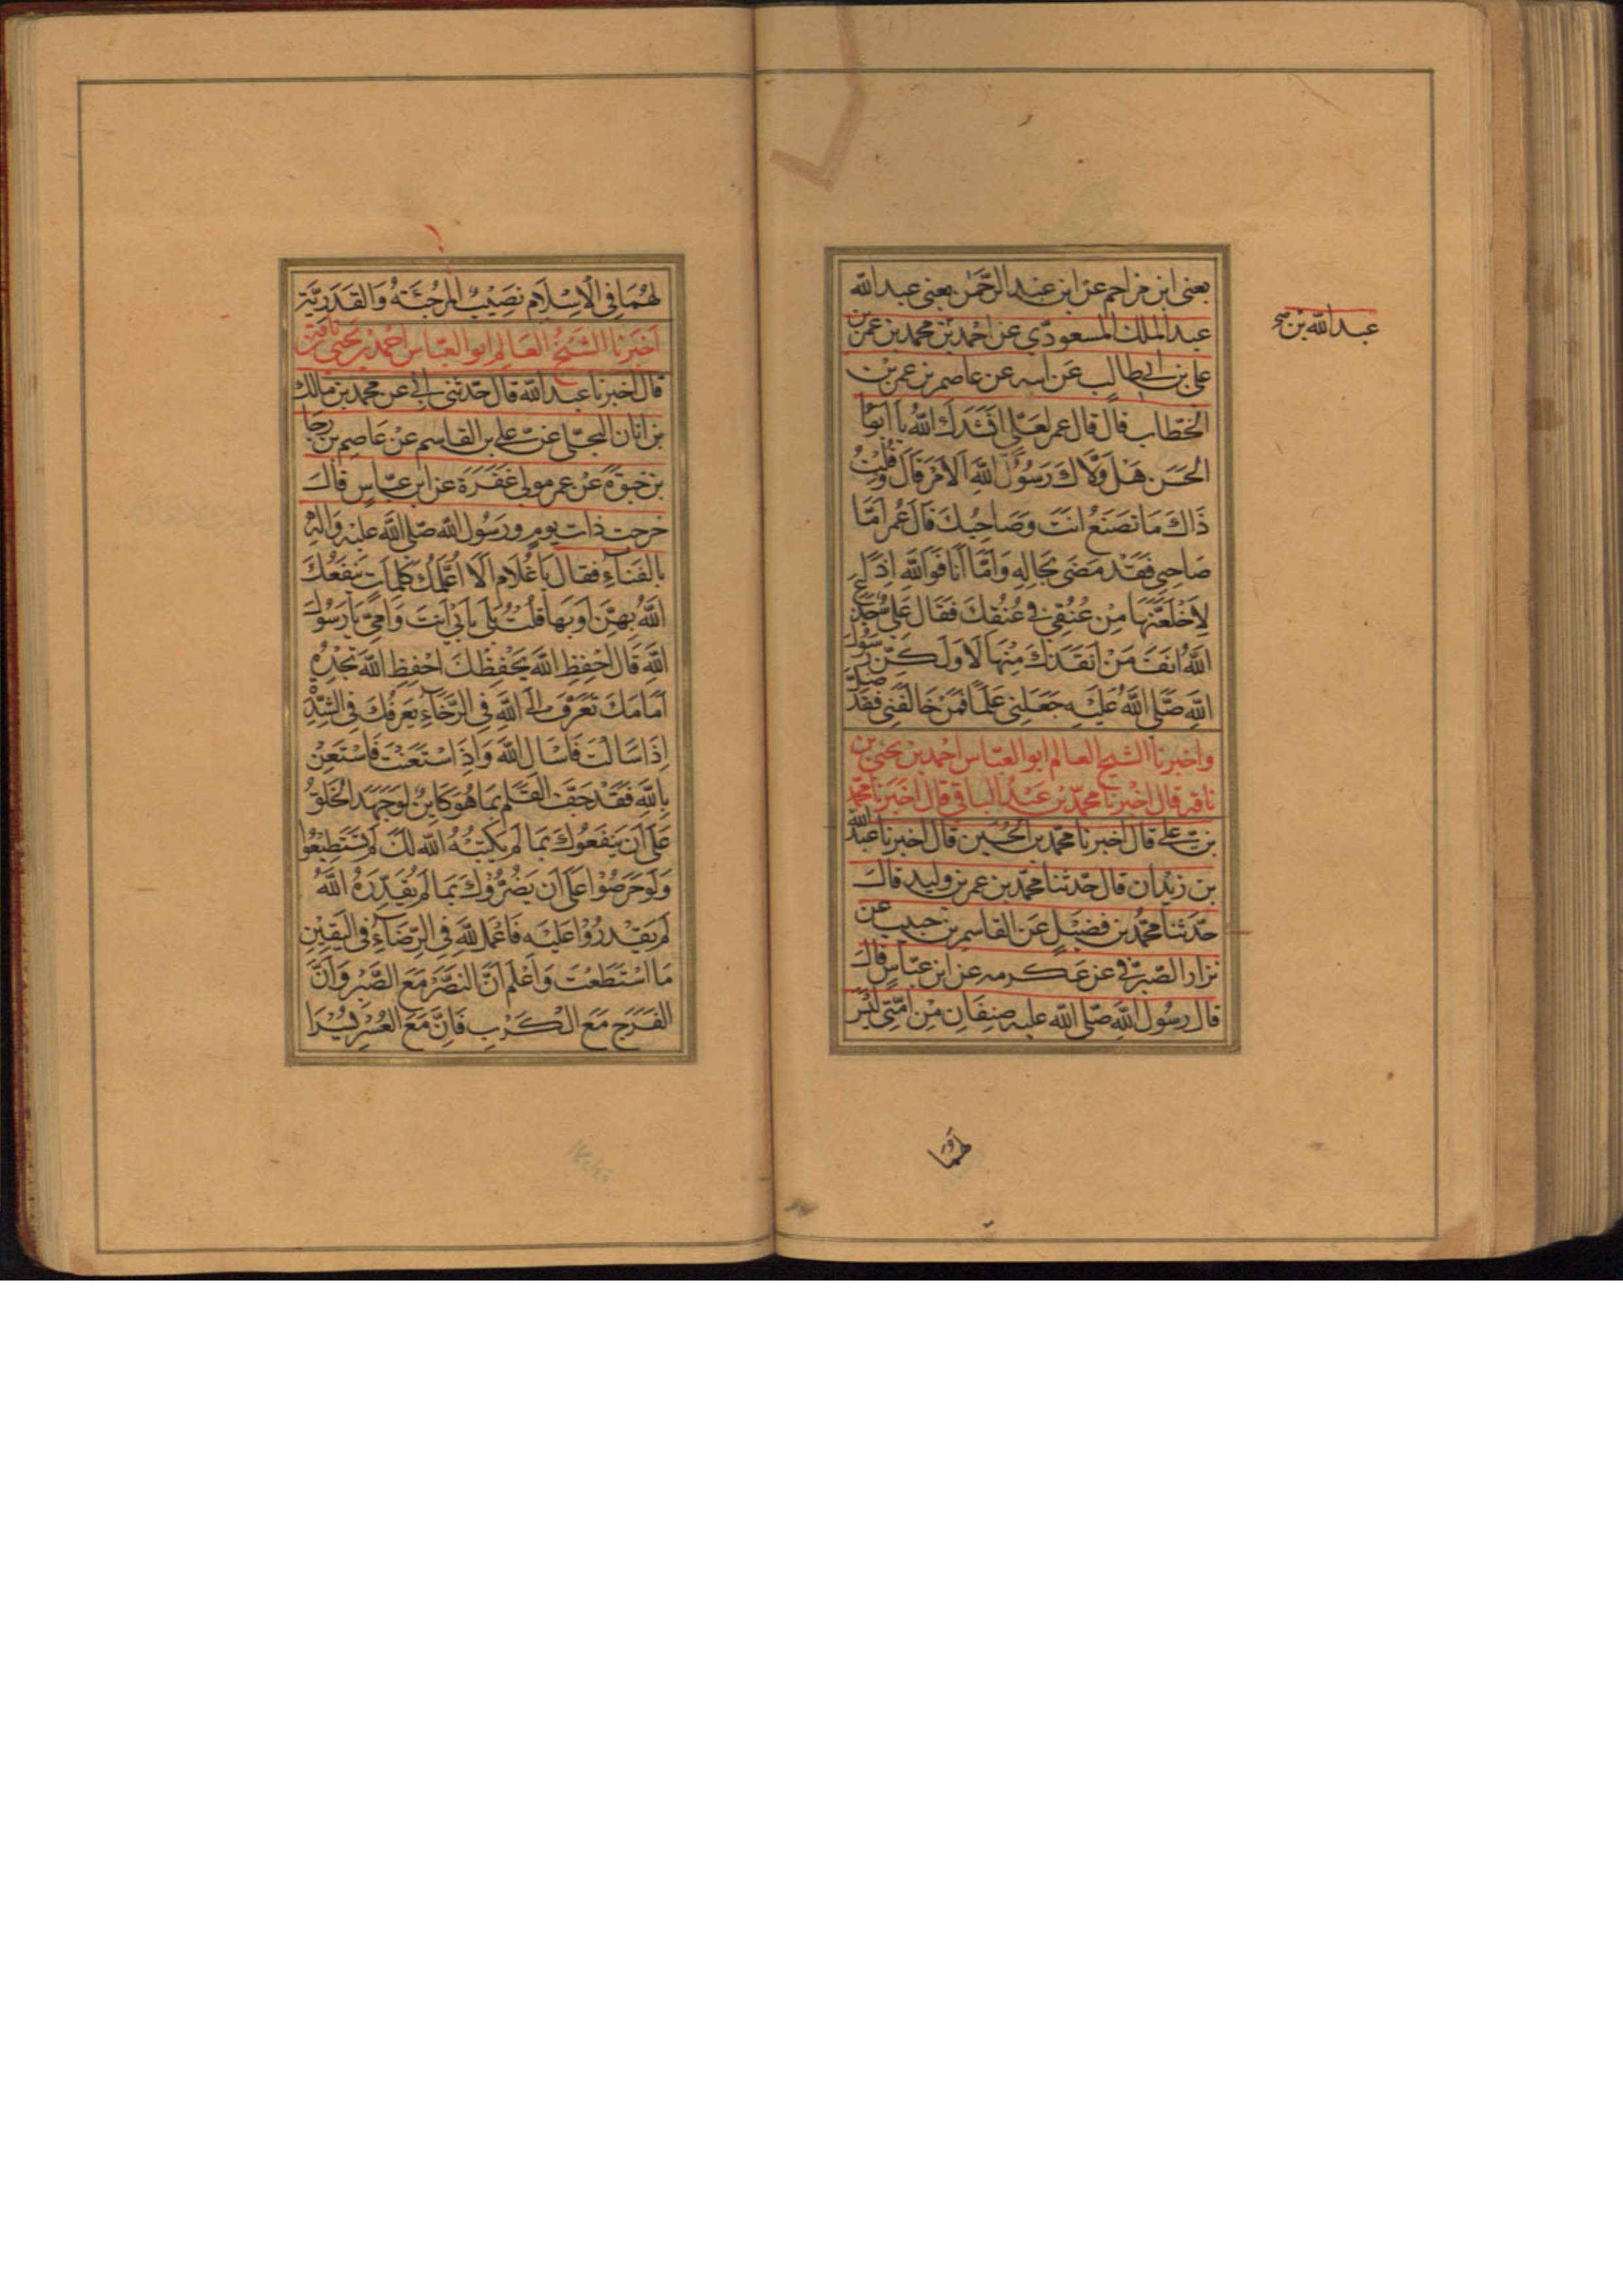 يعنى ابن مزاحم عن ابن عبد الرّحمن يعنى عبد الله
عبد الملك المسعودي عن احمد بن محمد بن عمر بن
على بن ابى طالب عن ابيه عن عاصم بن عمر بن
الخطاب قال قال عمر لعلى انشدك الله يا ابا
الحسن هَل وَلّاك رَسُول اللهِ الامر قال
ذاك ما تصنع انت وصاحبك قال عُمر امّا
صاحبى فقد مضى بحاله وامّا انا فوالله اذا
لاخلعنّها مِن عُنُقى فى عُنُقك فقال على
الله انف من انقذك منها لا ولكن رسول
الله صلى الله عليه جعلنى علما فمن خالفنى فقد
واخبرنا الشيخ العالم ابو العبّاس احمد بن يحيى بن
ناقه قال اخبرنا محمّد بن عبد الباقى قال اخبرنا محمّد
بن على قال اخبرنا محمّد بن الحُسَين قال اخبرنا عبد الله
بن زيدان قال حدّثنا محمّد بن عمر بن وليد قال
حدّثنا محمّد بن فضيل عن القاسم بن حبيب عن
نزار الصّيرفى عن عكرمه عن ابن عبّاس قال
قال رسُول الله صلّى الله عليه صنفان مِن امّتى ليس
لهما
عبد الله بن
لهُمَا فِى الاِسْلامِ نصِيْبٌ المرجئة والقدريّة
اخبرنا الشيخ العالم ابو العبّاس احمد بن يحيى بن ناقة
قال اخبرنا عبد الله قال حدّثنى ابى عن محمد بن مالك
بن ابان البجلى عن على بن القاسم عن عاصم بن رجا
بن عن عمر مولى غفرة عن ابن عبّاس قال
خرجت ذات يوم ورسول الله صلّى الله عليه واله
بالفناء فقال يا غلام الا اعلّمك كلمات ينفعك
اللهُ بهنّ اوبها قلتُ بلى بابى انت وامّى يا رسول
الله قال احفظِ الله يحفظك احفظِ الله تجده
امامك تعرّف الى الله فى الرّخاء يعرفك فى الشدّة
اذا سالت فاسال الله واذا استعنت فاستعن
بالله فقد جفّ القلم بما هو كاين لو جهد الخلق
على ان ينفعوك بما لم يكتبه الله لك لم تستطيعوا
ولو حرصوا على ان يضرّوك بما لم يقدّره الله
لم يقدروا عليه فاعمل لله فى الرّضاء فى اليقين
ما استطعت واعلم انّ النصر مع الصّبر وانّ
الفرج مع الكرب فانّ مع العُسر يُسرا